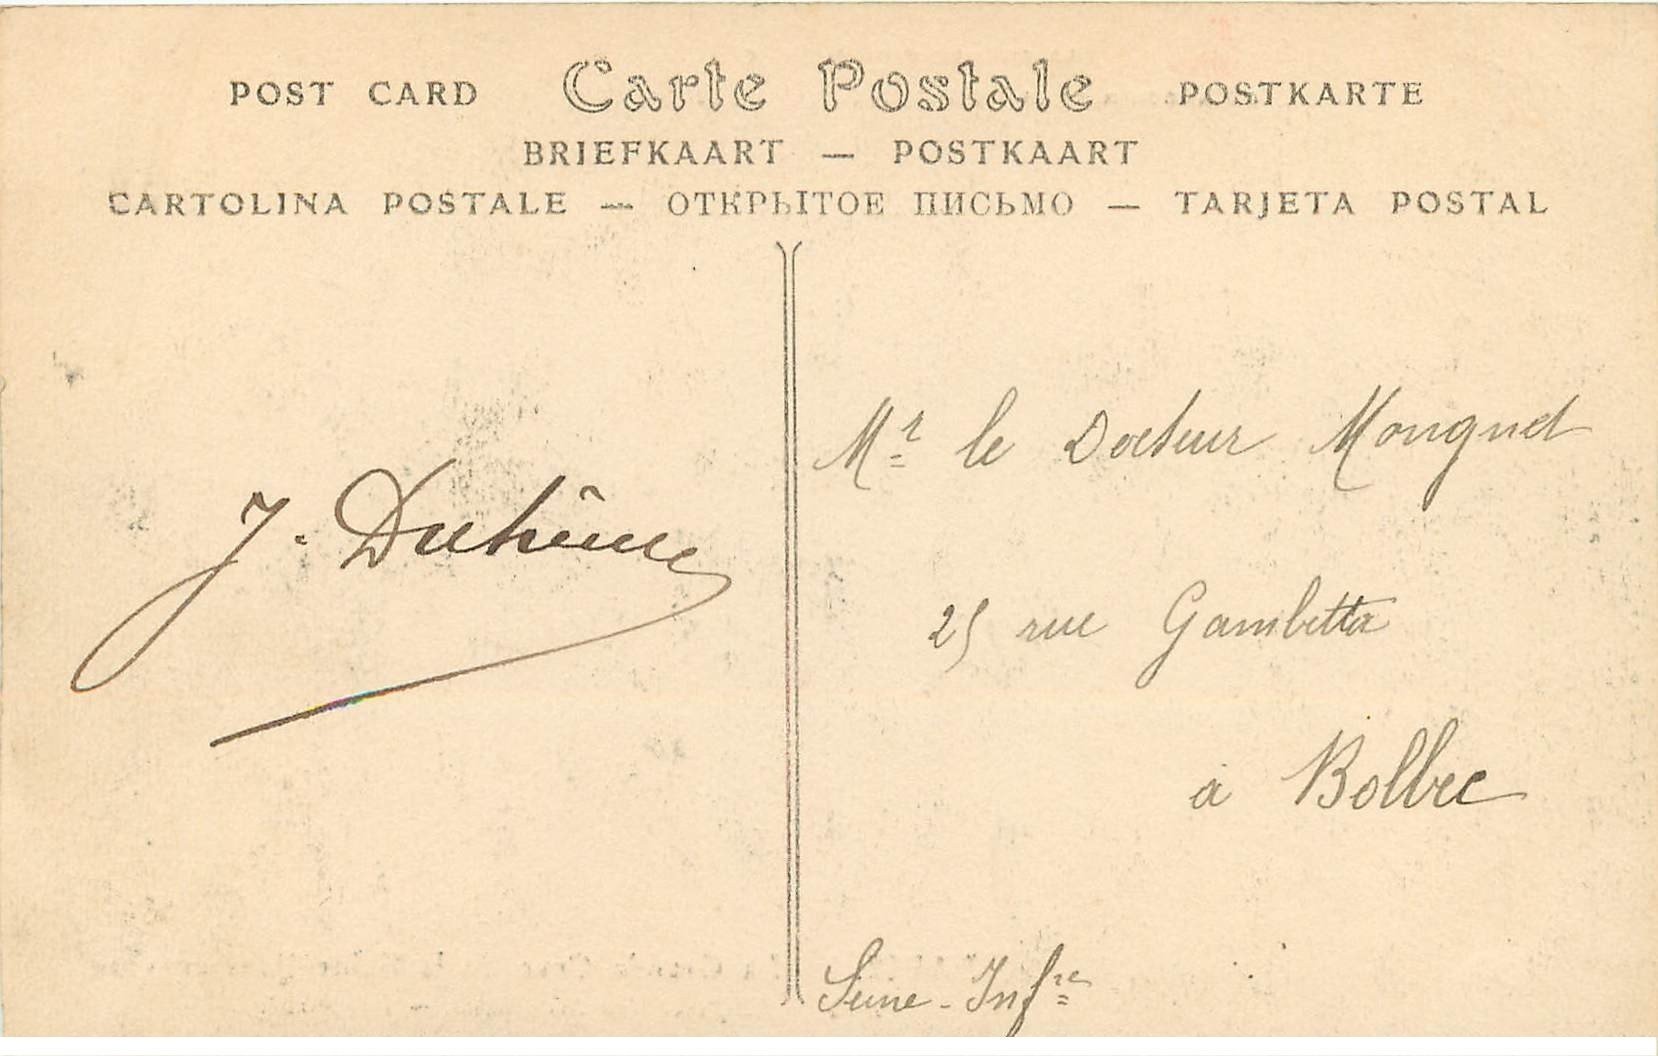 POST CARD Carte Postale POSTKARTE
BRIEFKAART — POSTKAART
CARTOLINA POSTALE — ОТКРЫТОЕ ПИСЬМО — TARJETA POSTAL
J. Duhême
Mr le Docteur Mongnet
25 rue Gambetta
à Bolbec
Seine-Infre